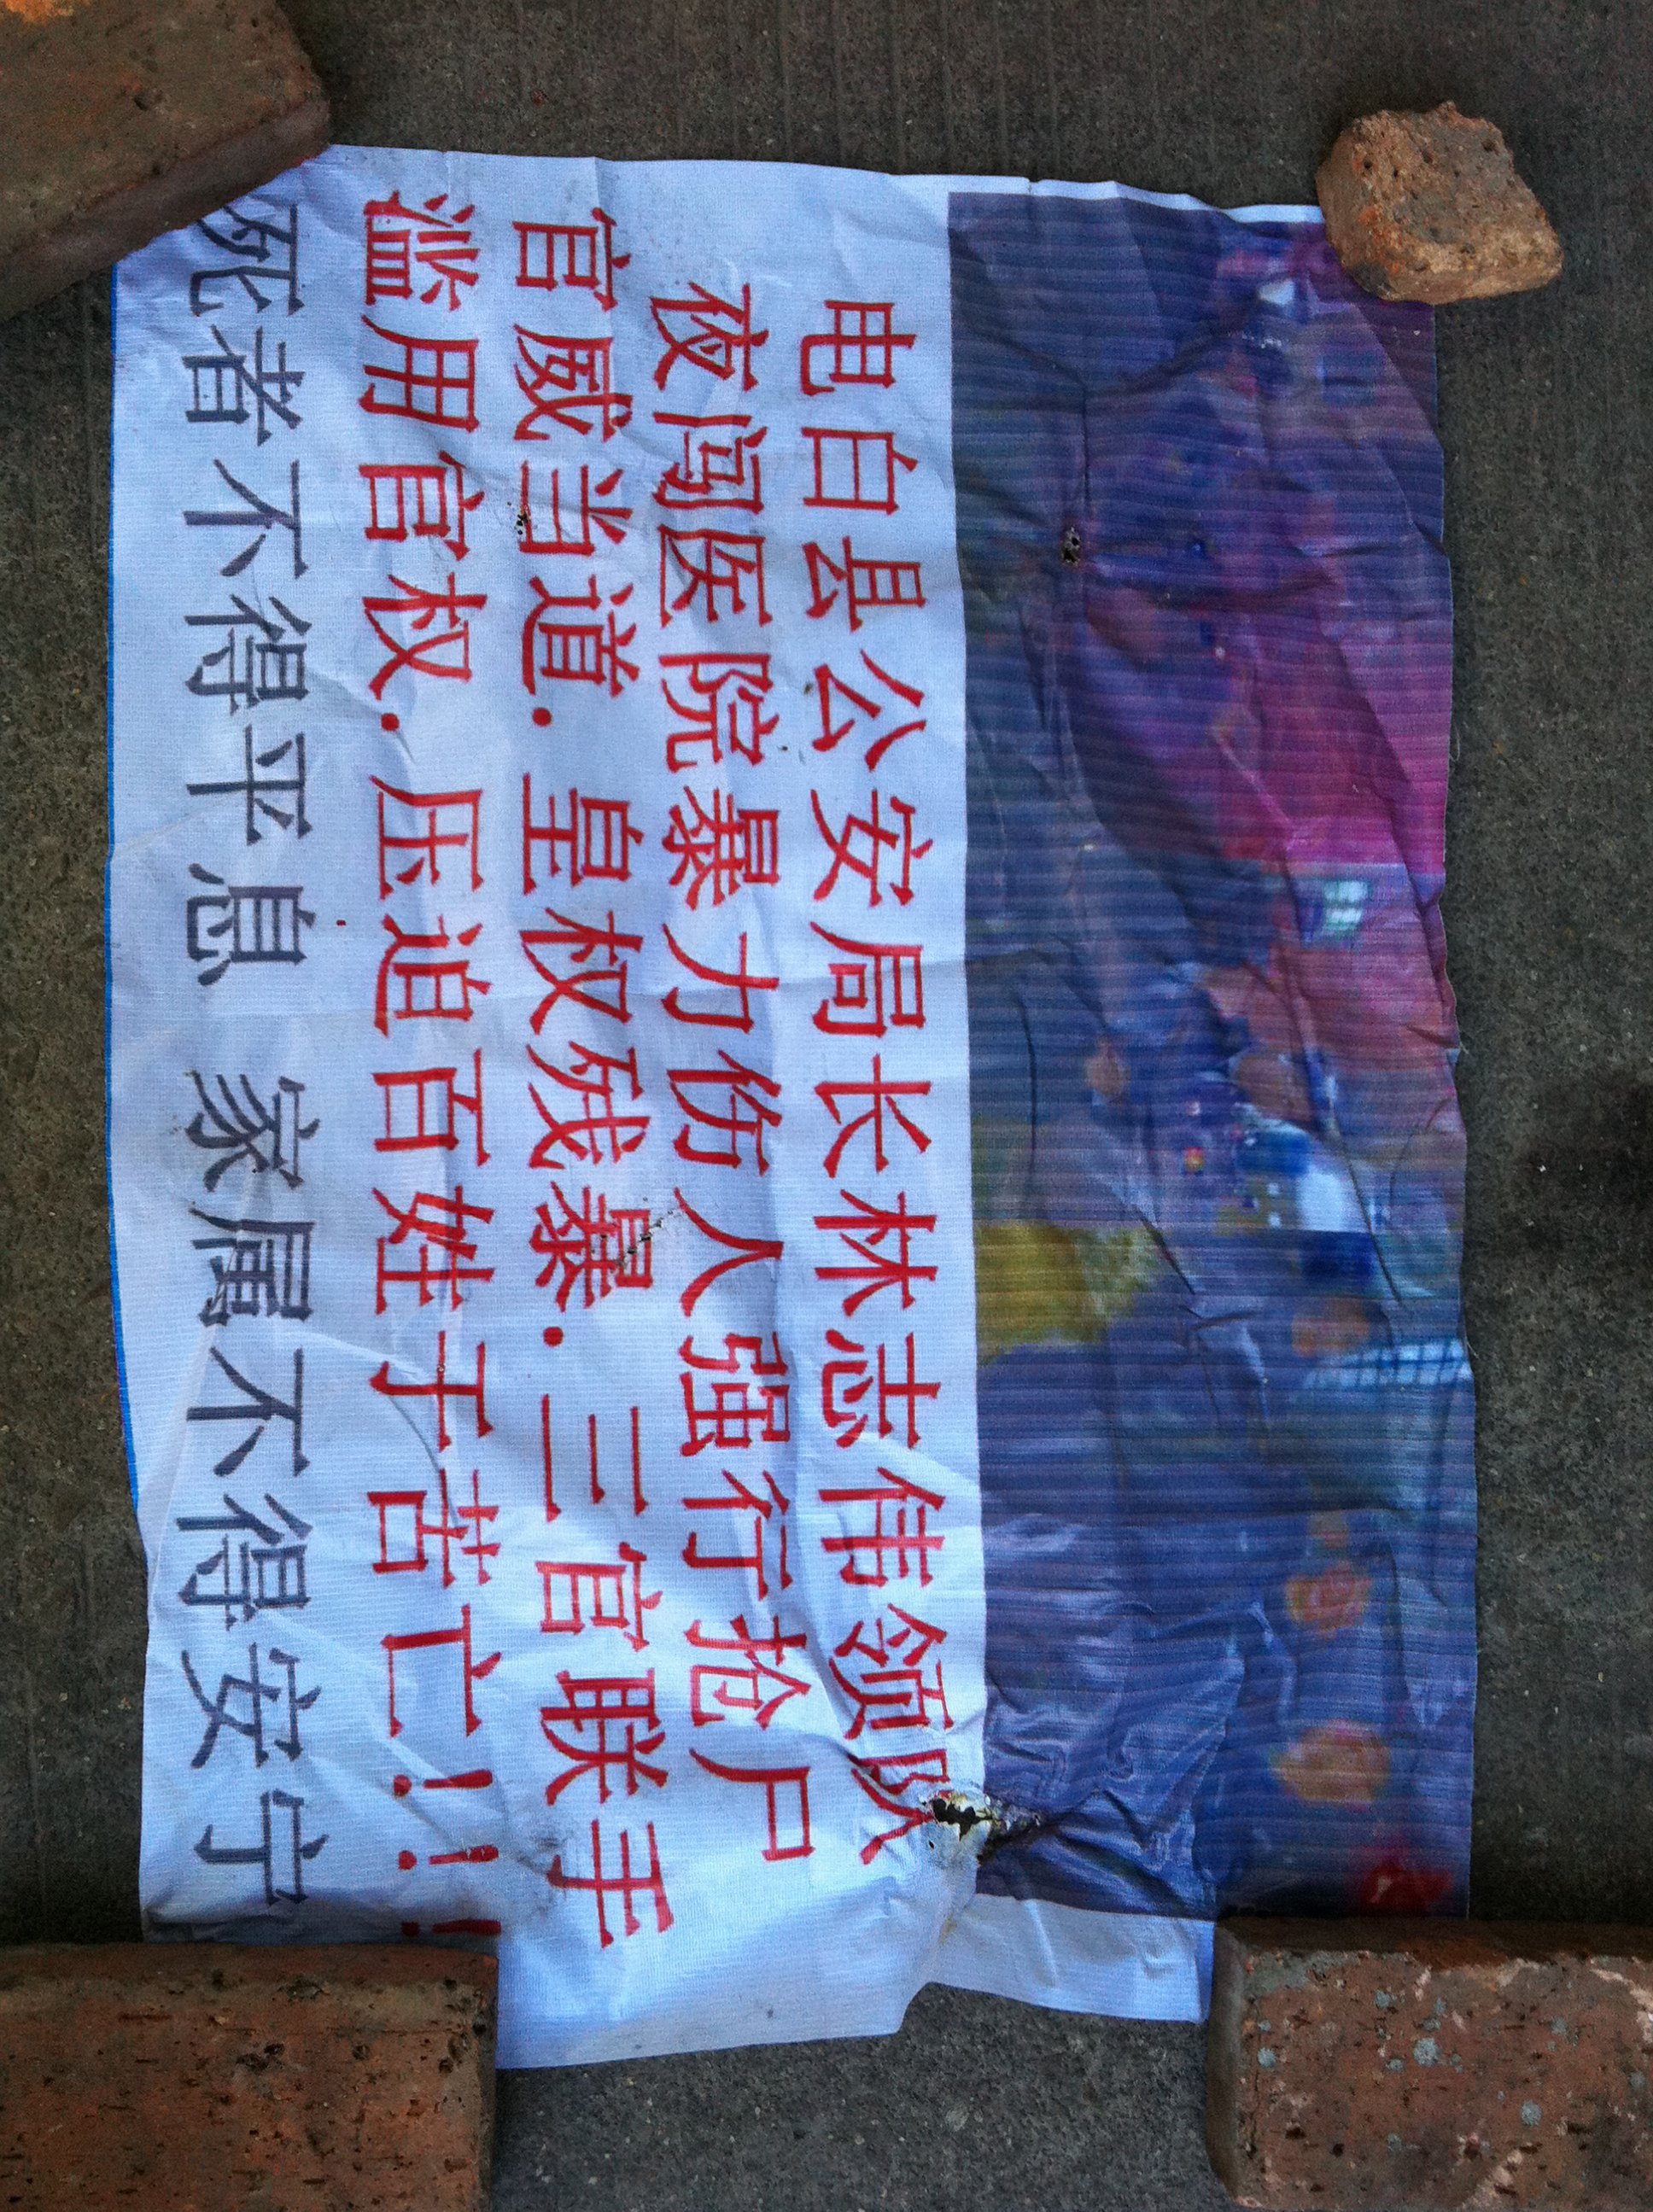 电白县公安局长林志伟领队
夜闯医院暴力伤人强行抢尸
官威当道.皇权残暴.三官联手
滥用官权.压迫百姓于苦亡!!!
死者不得平息 家属不得安宁